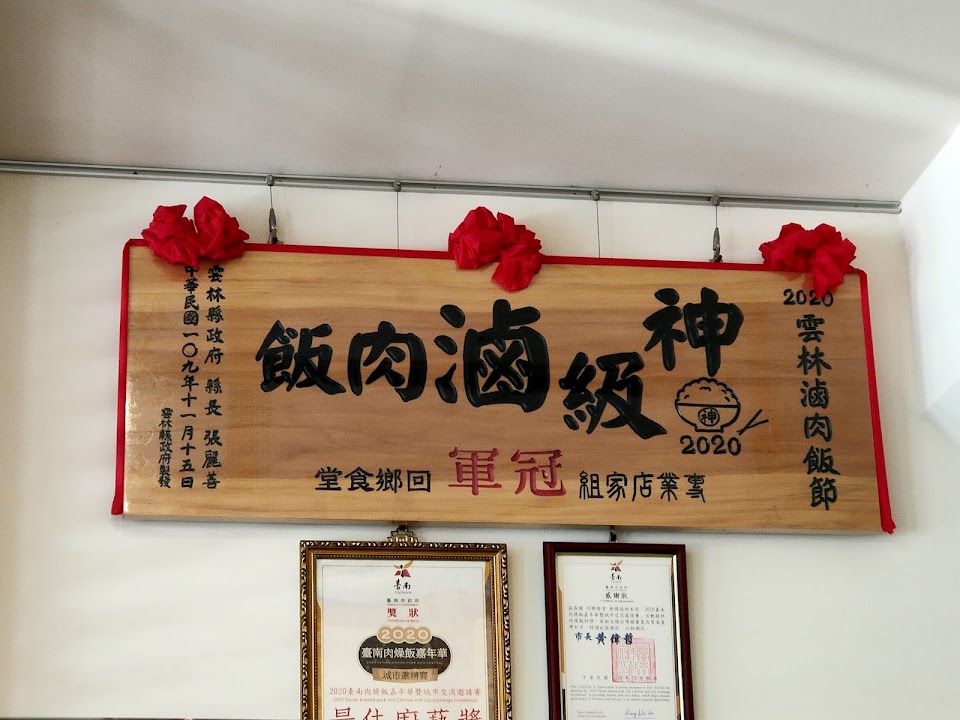 2020
雲林滷肉飯節
神級滷肉飯
神
2020
專業店家組 冠軍 回鄉食堂
雲林縣政府 縣長 張麗善
中華民國一〇九年十一月十五日
雲林縣政府製發
臺南
TAINAN
臺南市政府
獎狀
2020
臺南肉燥飯嘉年華
城市邀請賽
2020臺南肉燥飯嘉年華暨城市交流邀請賽
最佳麻菇獎
臺南
TAINAN
臺南市政府
感謝狀
市長 黃偉哲
中華民國